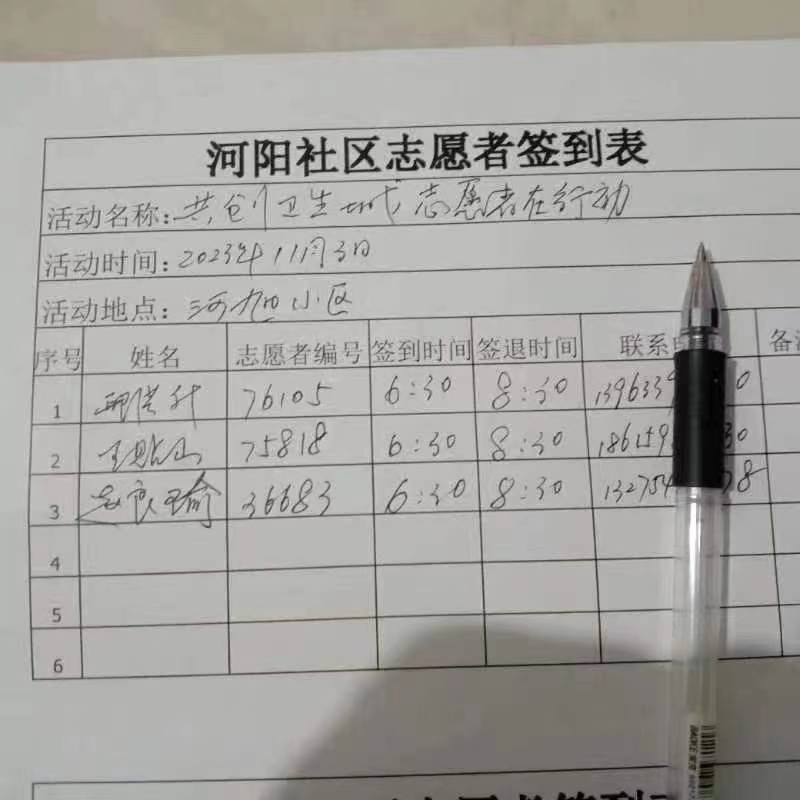 河阳社区志愿者签到表
活动名称:共创卫生城 志愿者在行动
活动时间:2023年11月3日
活动地点:河旭小区
序号 姓名 志愿者编号 签到时间 签退时间 联系 备
1 76105 6:30 8:30 139633 0
2 75818 6:30 8:30 18615 30
3 赵良瑜 36683 6:30 8:30 132754 78
4
5
6